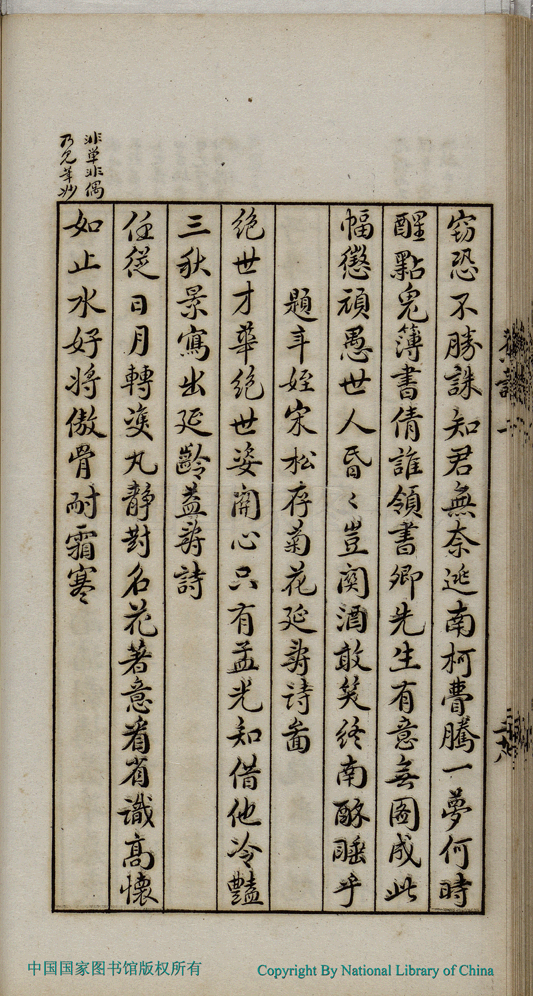 窃恐不勝誅知君無奈逃南柯瞢騰一夢何時
醒點鬼簿書倩誰領書卿先生有意無圖成此
幅懲頑愚世人昏〻豈関酒敢笑終南酥睡乎
題年姪宋松存菊花延壽詩畜
绝世才華绝世姿関心只有孟光知借他冷豔
三秋景寫出延齡益壽詩
任從日月轉雙丸靜對名花著意看省識高懷
如止水好将傲骨耐霜寒
非单非偶
乃見筆妙
中国国家图书馆版权所有
Copyright By National Library of China